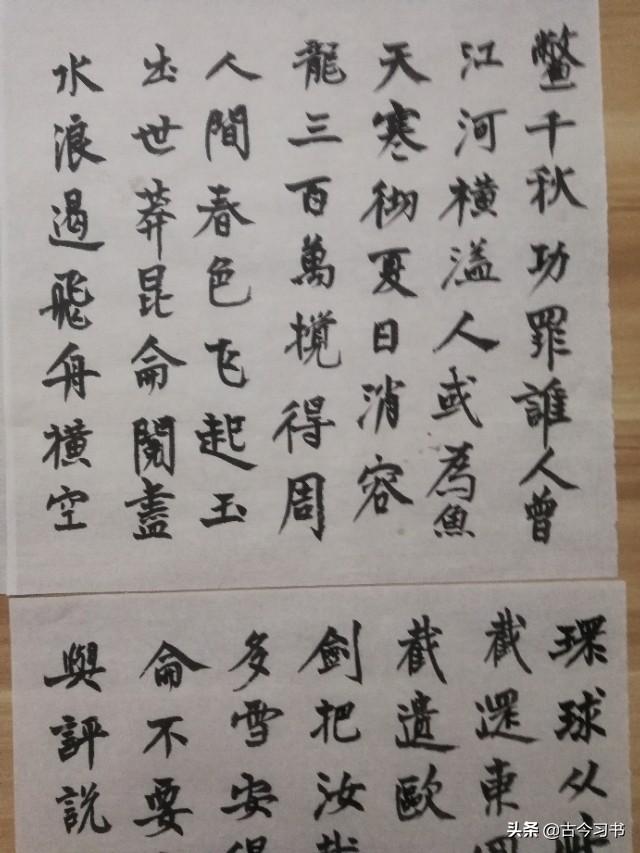 水浪遏飛舟横空
出世莽昆侖閱盡
人間春色飞起玉
龍三百萬攪得周
天寒彻夏日消容
江河横溢人或為魚
鱉千秋功罪誰人曾
與評說
侖不要
多雪安
劍把汝
截遺歐
截還東
環球从
头条 @古今习书